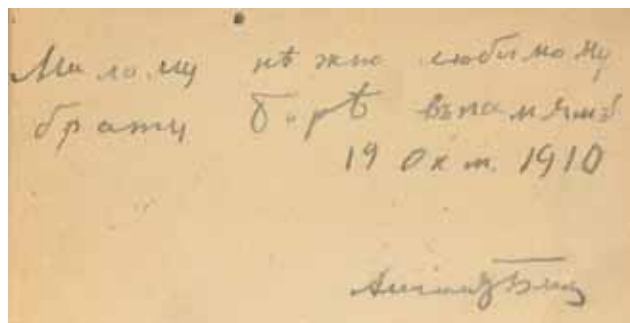 Милому нѣжно любимому
брату Борѣ въ память
19 Окт. 1910